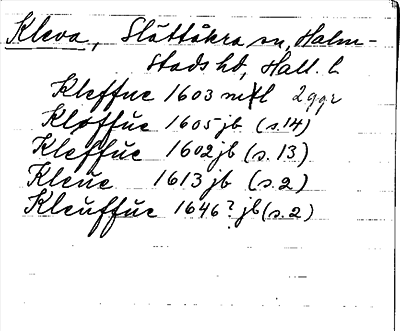 Kleva, Slättåkra sn, Halm-
stads hd, Hall. l.
Kleffue 1603 mtl 2 ggr
Kløffue 1605 jb (s. 14)
Kleffue 1602 jb (s. 13)
Kleue 1613 jb (s. 2)
Kleuffue 1646? jb (s. 2)